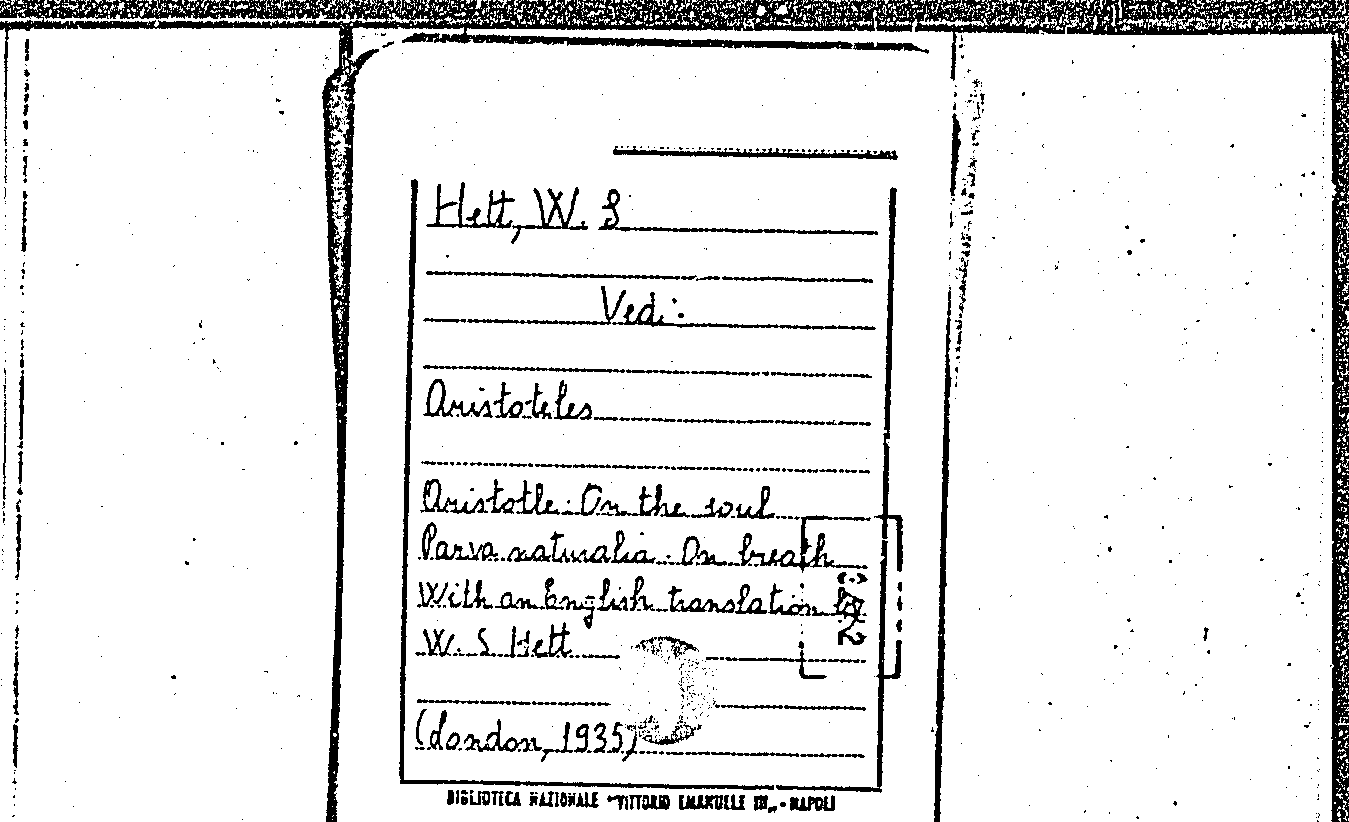 Hett, W. S
Vedi:
Aristoteles
Aristotle. On the soul
Parva naturalia. On breath
With an English translation by
W. S Hett
(London, 1935)
BIBLIOTECA NAZIONALE "VITTORIO EMANUELE III„ - NAPOLI